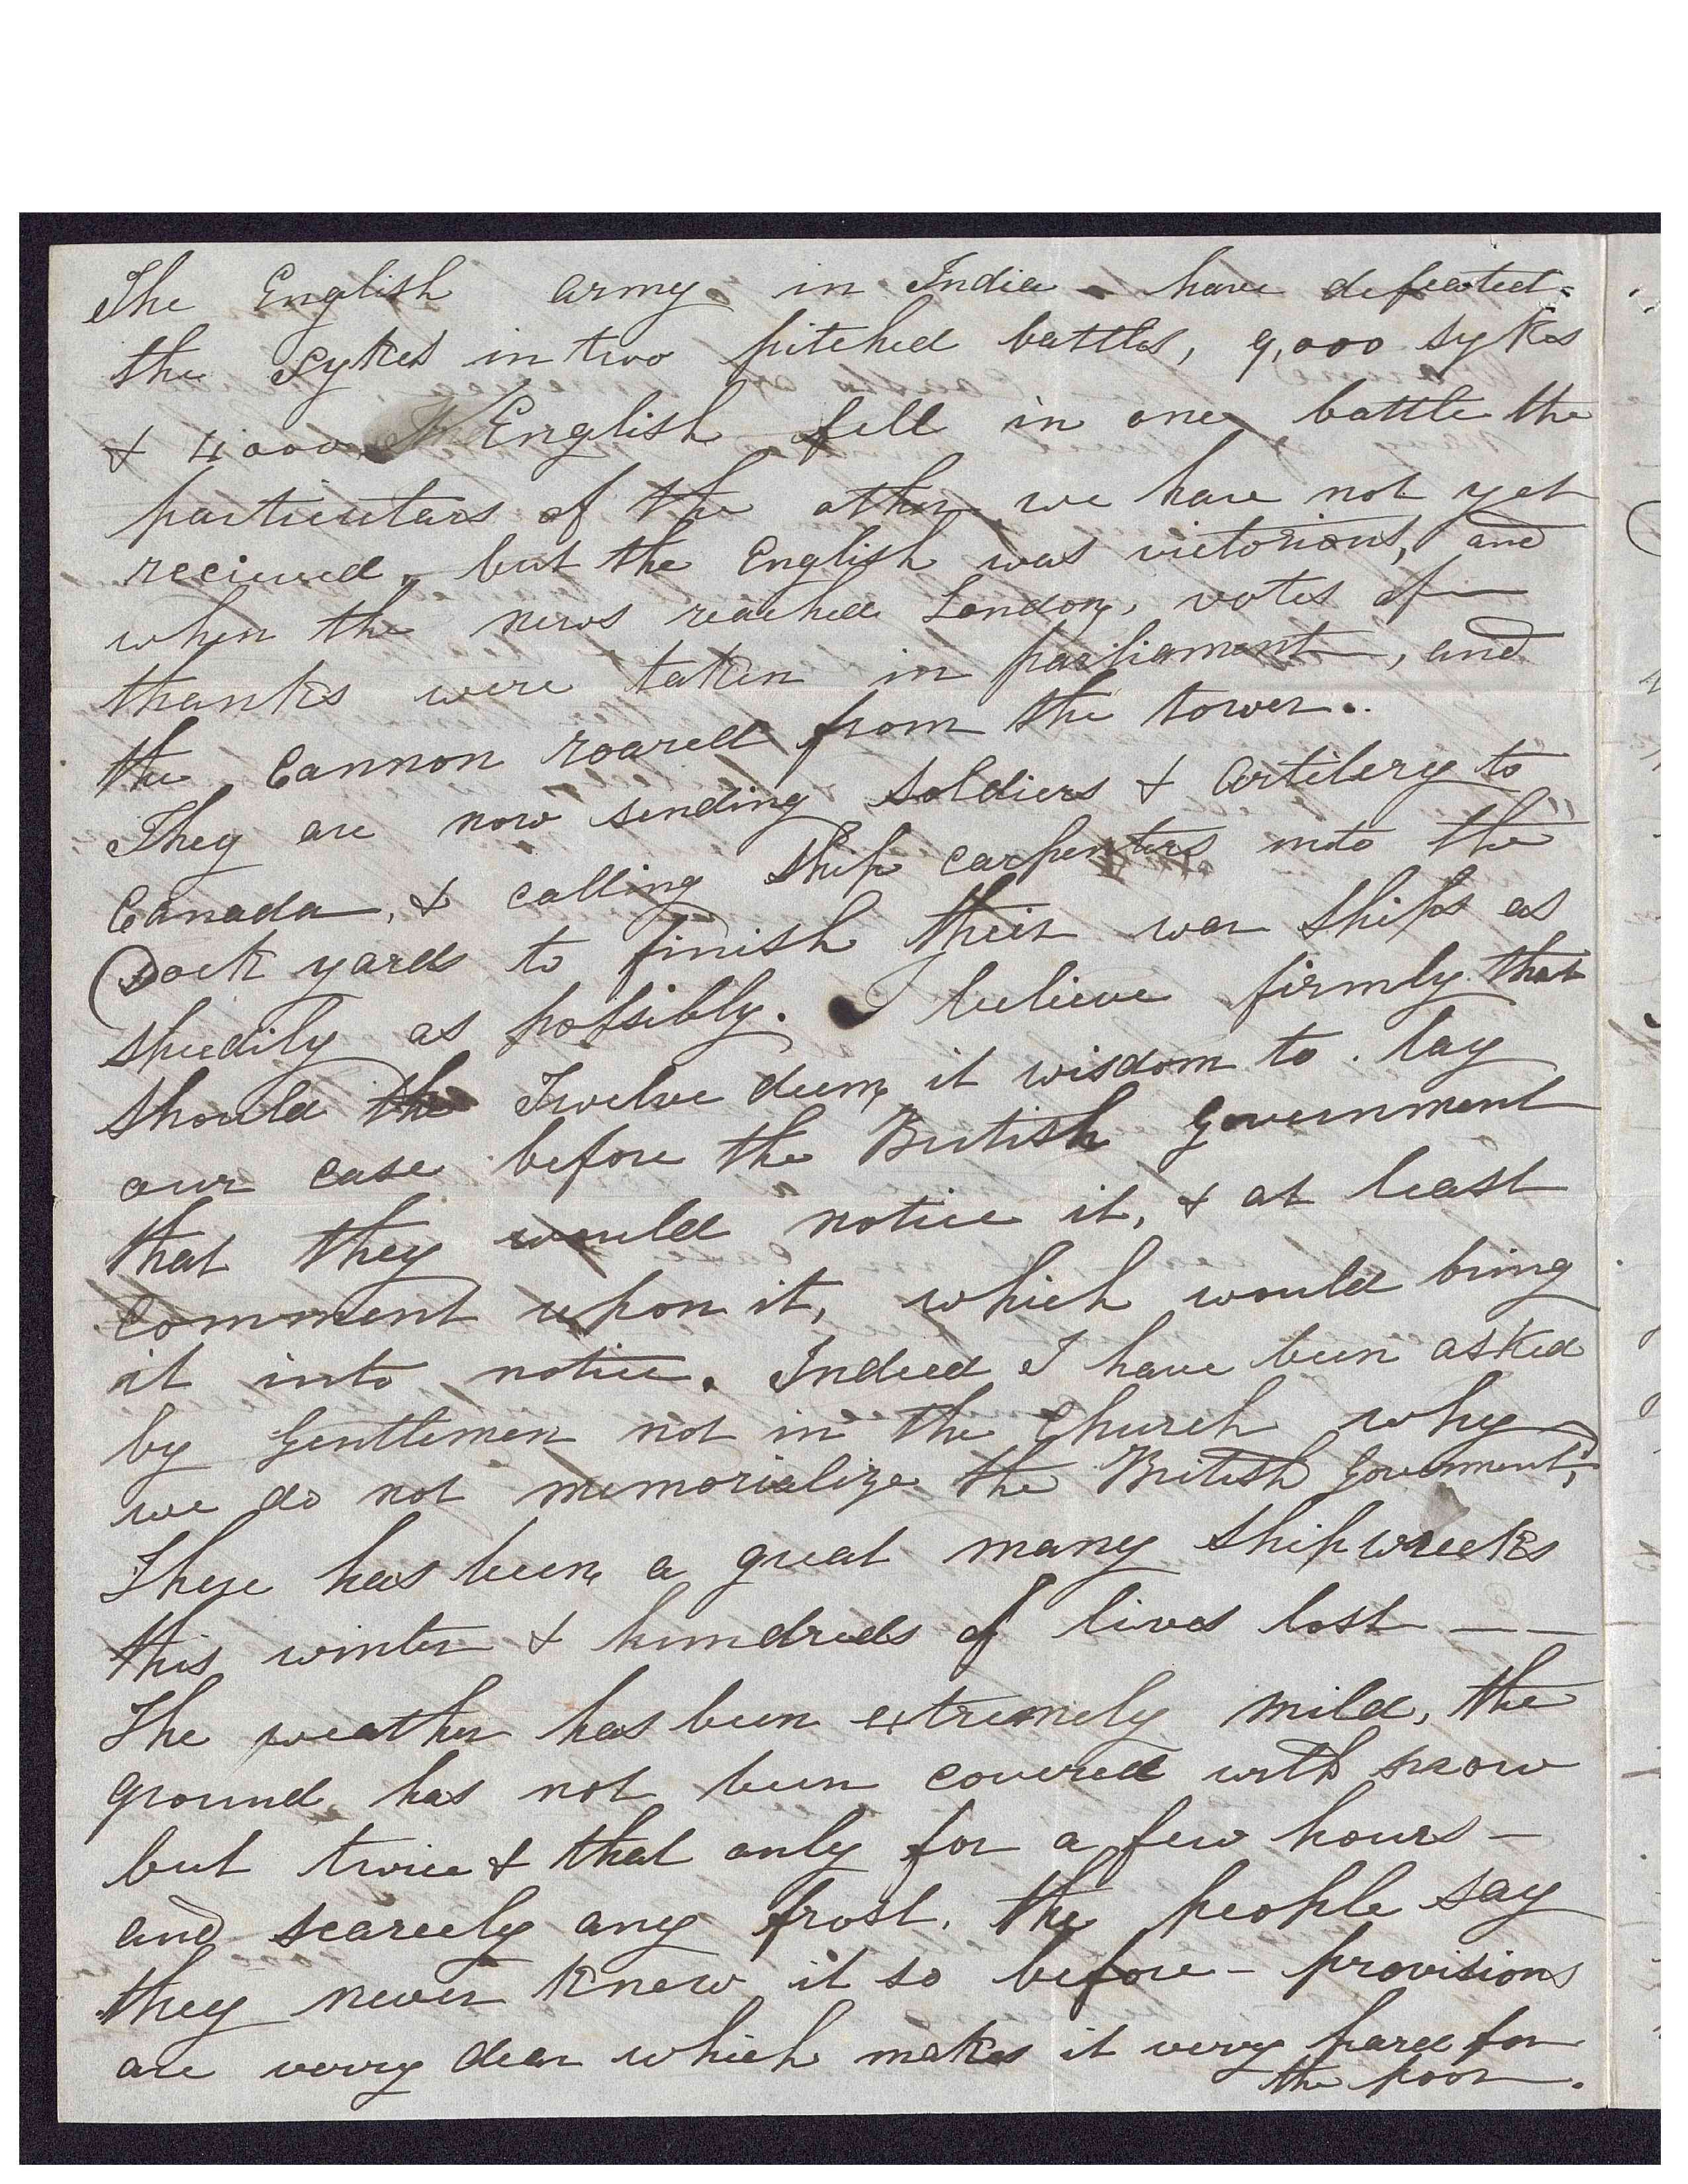 The English army in India - have defeated-
the Sykes in two pitched battles, 9,000 sykes
& 4000 English fell in one battle the
particulars of the other we have not yet
recieved, but the English was victorious, and
when the news reached London, votes of —
thanks were taken in parliament, and
the Cannon roared from the tower..
They are now sending soldiers & Artilery to
Canada, & calling ship carpenters into the
Dock yards to finish their war ships as
speedily as possibly. I believe firmly that
should the Twelve deem it wisdom to lay
our case before the British Government
that they would notice it, & at least
comment upon it, which would bring
it into notice. Indeed I have been asked
by Gentlemen not in the Church why
we do not memorialize the British Government;
There has been a great many shipwrecks
this winter & hundreds of lives lost — —
The weather has been extremely mild, the
ground has not been covered with snow
but twice & that only for a few hours -
and scarcely any frost. the people say
they never knew it so before - provisions
are verry dear which makes it very hard for
the poor.